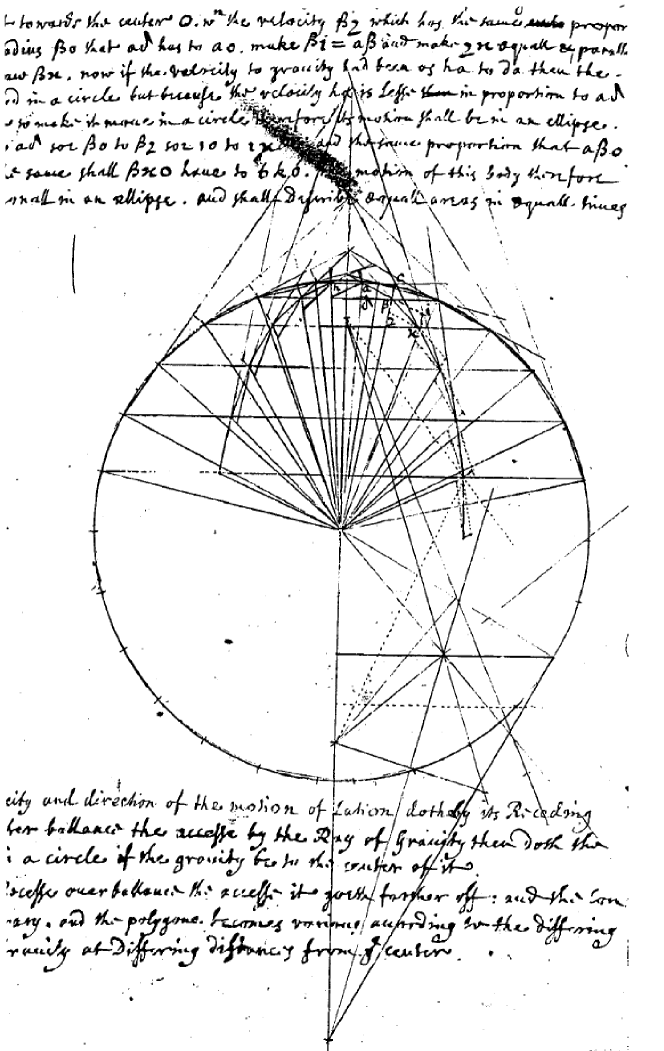 towards the center O. wn the velocity β2 which has the same propor
adius βo that ad has to ao. make β1 = aβ and make 2x equall & paralle
βx. now if the velocity to gravity had been os ha to da then the
od in a circle but because the velocity ha is Lesse in proportion to ad
to make it move in a circle therefore its motion shall be in an ellipse.
ad soe βo to β2 soe 10 to 1x and the same proportion that aβo
same shall βxo have to motion of this body therefore
small in an ellipse. and shall Describe equall areas in equall times
h
a
c
d
β
1
2
x
city and direction of the motion of Lation dothe by its Receding
ballance the accesse by the Ray of Gravity then doth the
i a circle if the gravity be to the center off it
ecesse overballance the accesse it goeth farther off: and the Con
ary. and the polygone becomes various according to the differing
ravity at Differing distances from ye center.